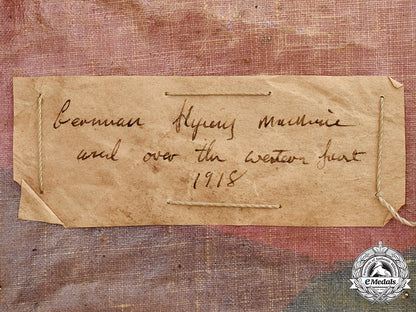 German Flying Machine
used over the western front
1918
eMedals